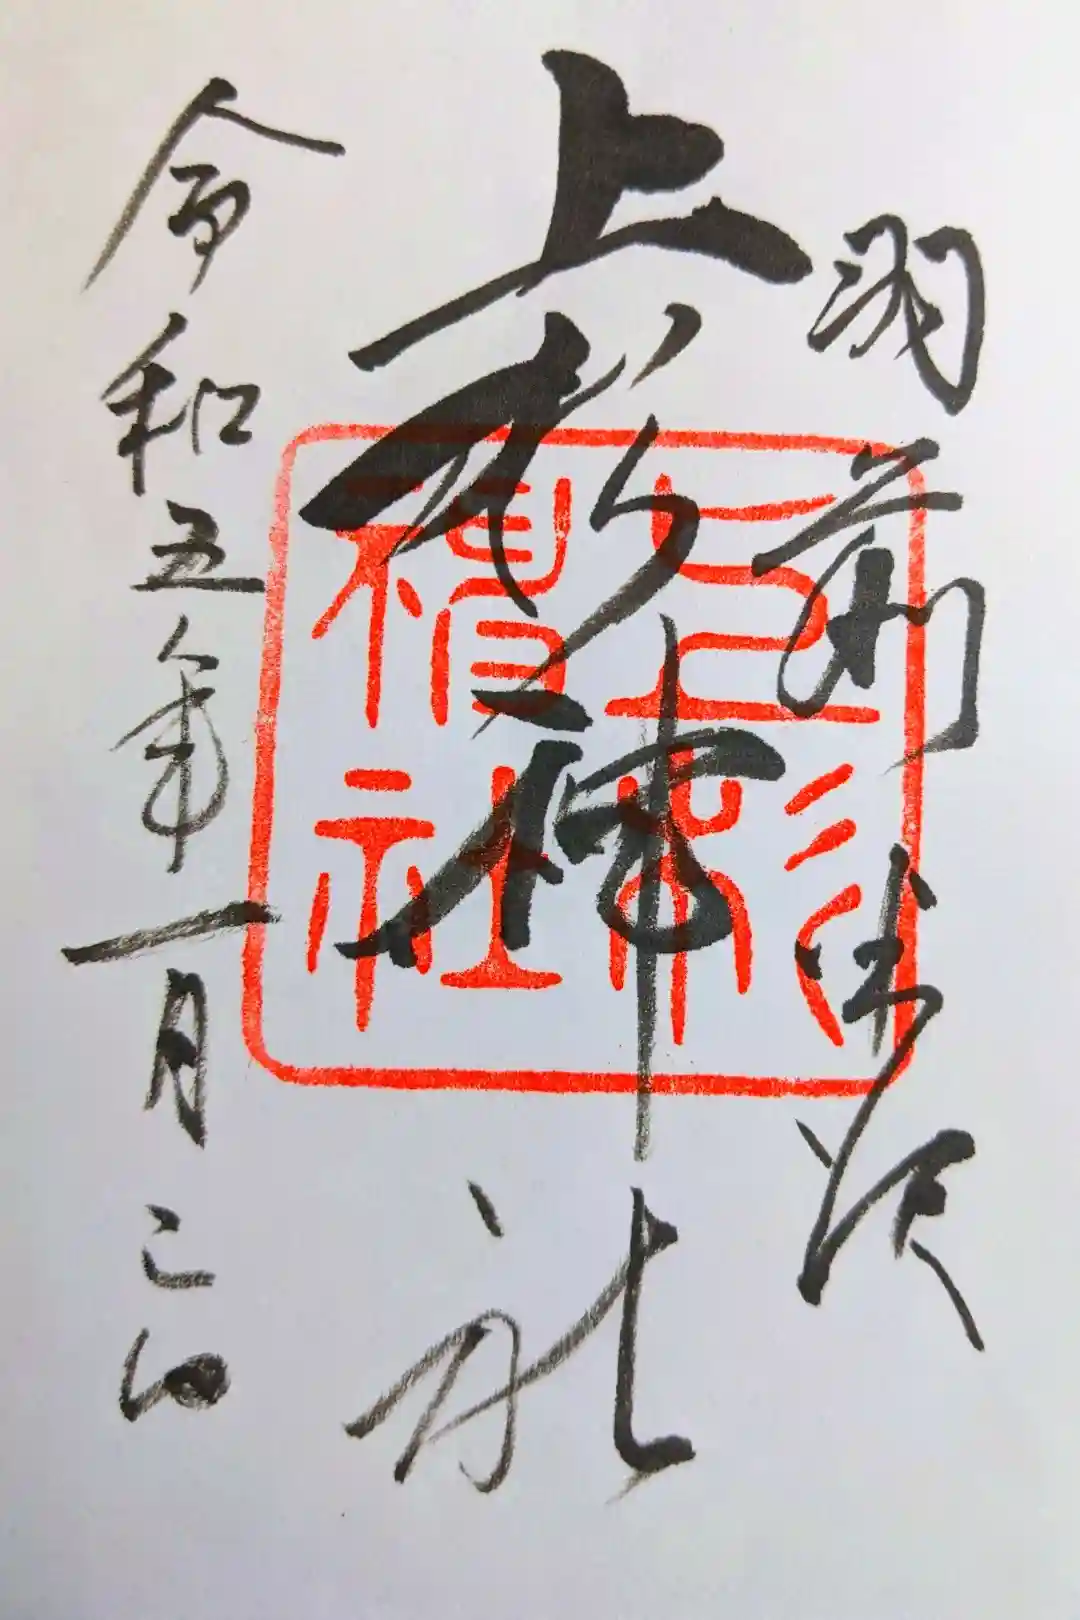 羽前米沢
上杉神社
令和五年一月二日
上杉
神社